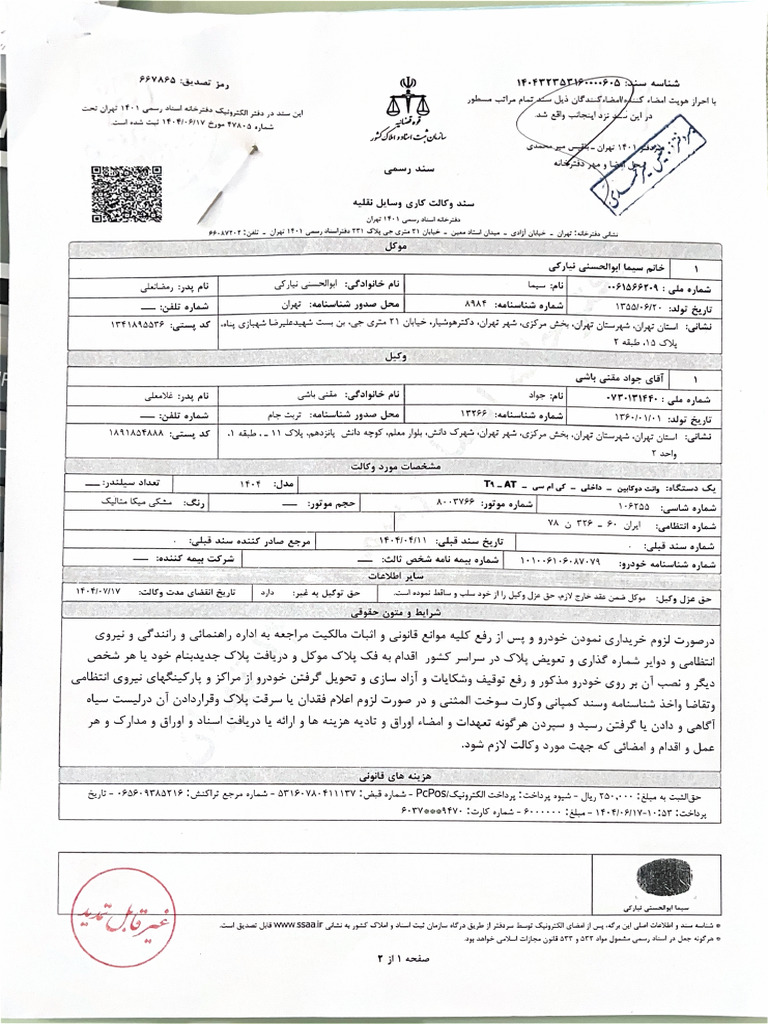 شناسه سند: ۱۴۰۴۳۲۳۵۳۱۶۰۰۰۰۶۰۵
با احراز هویت امضاء کننده/امضاءکنندگان ذیل سند تمام مراتب مسطور
در این سند نزد اینجانب واقع شد.
سردفتر ۱۴۰۱ تهران - بلقیس میر محمدی
محل امضا و مهر دفترخانه
قوه قضائیه
سازمان ثبت اسناد و املاک کشور
سند رسمی
رمز تصدیق: ۶۶۷۸۶۵
این سند در دفتر الکترونیک دفترخانه اسناد رسمی ۱۴۰۱ تهران تحت
شماره ۴۷۸۰۵ مورخ ۱۴۰۴/۰۶/۱۷ ثبت شده است.
سند وکالت کاری وسایل نقلیه
دفترخانه اسناد رسمی ۱۴۰۱ تهران
نشانی دفترخانه: تهران - خیابان آزادی - میدان استاد معین - خیابان ۲۱ متری جی پلاک ۲۳۱ دفتراسناد رسمی ۱۴۰۱ تهران - تلفن: ۶۶۰۸۷۲۰۲
موکل
۱ خانم سیما ابوالحسنی نیارکی
شماره ملی : ۰۰۶۱۵۶۶۲۰۹ نام: سیما نام خانوادگی: ابوالحسنی نیارکی نام پدر: رمضانعلی
تاریخ تولد: ۱۳۵۵/۰۶/۲۰ شماره شناسنامه: ۸۹۸۴ محل صدور شناسنامه: تهران شماره تلفن: ---
نشانی: استان تهران، شهرستان تهران، بخش مرکزی، شهر تهران، دکترهوشیار، خیابان ۲۱ متری جی، بن بست شهیدعلیرضا شهبازی پناه، کد پستی: ۱۳۴۱۸۹۵۵۳۶
پلاک ۱۵، طبقه ۲
وکیل
۱ آقای جواد مقنی باشی
شماره ملی : ۰۷۳۰۱۳۱۴۴۰ نام: جواد نام خانوادگی: مقنی باشی نام پدر: غلامعلی
تاریخ تولد: ۱۳۶۰/۰۱/۰۱ شماره شناسنامه: ۱۳۲۶۶ محل صدور شناسنامه: تربت جام شماره تلفن: ---
نشانی: استان تهران، شهرستان تهران، بخش مرکزی، شهر تهران، شهرک دانش، بلوار معلم، کوچه دانش پانزدهم، پلاک ۱۱ ـ ، طبقه ۱، کد پستی: ۱۸۹۱۸۵۴۸۸۸
واحد ۲
مشخصات مورد وکالت
یک دستگاه: وانت دوکابین - داخلی - کی ام سی - T۹ ـ AT مدل: ۱۴۰۴ تعداد سیلندر: ---
شماره شاسی: ۱۰۶۲۵۵ شماره موتور: ۸۰۰۳۷۶۶ حجم موتور: --- رنگ: مشکی میکا متالیک
شماره انتظامی: ایران ۶۰ - ۳۲۶ ن ۷۸
شماره سند قبلی: ۰ تاریخ سند قبلی: ۱۴۰۴/۰۴/۱۱ مرجع صادر کننده سند قبلی: ۰
شماره شناسنامه خودرو: ۱۰۱۰۰۶۱۰۶۰۸۷۰۷۹ شماره بیمه نامه شخص ثالث: --- شرکت بیمه کننده: ---
سایر اطلاعات
حق عزل وکیل: موکل ضمن عقد خارج لازم، حق عزل وکیل را از خود سلب و ساقط نموده است. حق توکیل به غیر: دارد تاریخ انقضای مدت وکالت: ۱۴۰۴/۰۷/۱۷
شرایط و متون حقوقی
درصورت لزوم خریداری نمودن خودرو و پس از رفع کلیه موانع قانونی و اثبات مالکیت مراجعه به اداره راهنمائی و رانندگی و نیروی
انتظامی و دوایر شماره گذاری و تعویض پلاک در سراسر کشور اقدام به فک پلاک موکل و دریافت پلاک جدیدبنام خود یا هر شخص
دیگر و نصب آن بر روی خودرو مذکور و رفع توقیف وشکایات و آزاد سازی و تحویل گرفتن خودرو از مراکز و پارکینگهای نیروی انتظامی
وتقاضا واخذ شناسنامه وسند کمپانی وکارت سوخت المثنی و در صورت لزوم اعلام فقدان یا سرقت پلاک وقراردادن آن درلیست سیاه
آگاهی و دادن یا گرفتن رسید و سپردن هرگونه تعهدات و امضاء اوراق و تادیه هزینه ها و ارائه یا دریافت اسناد و اوراق و مدارک و هر
عمل و اقدام و امضائی که جهت مورد وکالت لازم شود.
هزینه های قانونی
حق‌الثبت به مبلغ: ۲۵۰,۰۰۰ ریال - شیوه پرداخت: پرداخت الکترونیک/PcPos - شماره قبض: ۵۳۱۶۰۷۸۰۴۱۱۱۳۷ - شماره مرجع تراکنش: ۰۶۵۶۰۹۳۸۵۲۱۶ - تاریخ
پرداخت: ۱۰:۵۳-۱۴۰۴/۰۶/۱۷ - مبلغ: ۶۰۰۰۰۰۰ - شماره کارت: ۹۴۷۰***۶۰۳۷
سیما ابوالحسنی نیارکی
غیر قابل تمدید
* شناسه سند و اطلاعات اصلی این برگه، پس از امضای الکترونیک توسط سردفتر از طریق درگاه سازمان ثبت اسناد و املاک کشور به نشانی www.ssaa.ir قابل تصدیق است.
* هرگونه جعل در اسناد رسمی مشمول مواد ۵۳۲ و ۵۳۳ قانون مجازات اسلامی خواهد بود.
صفحه ۱ از ۲